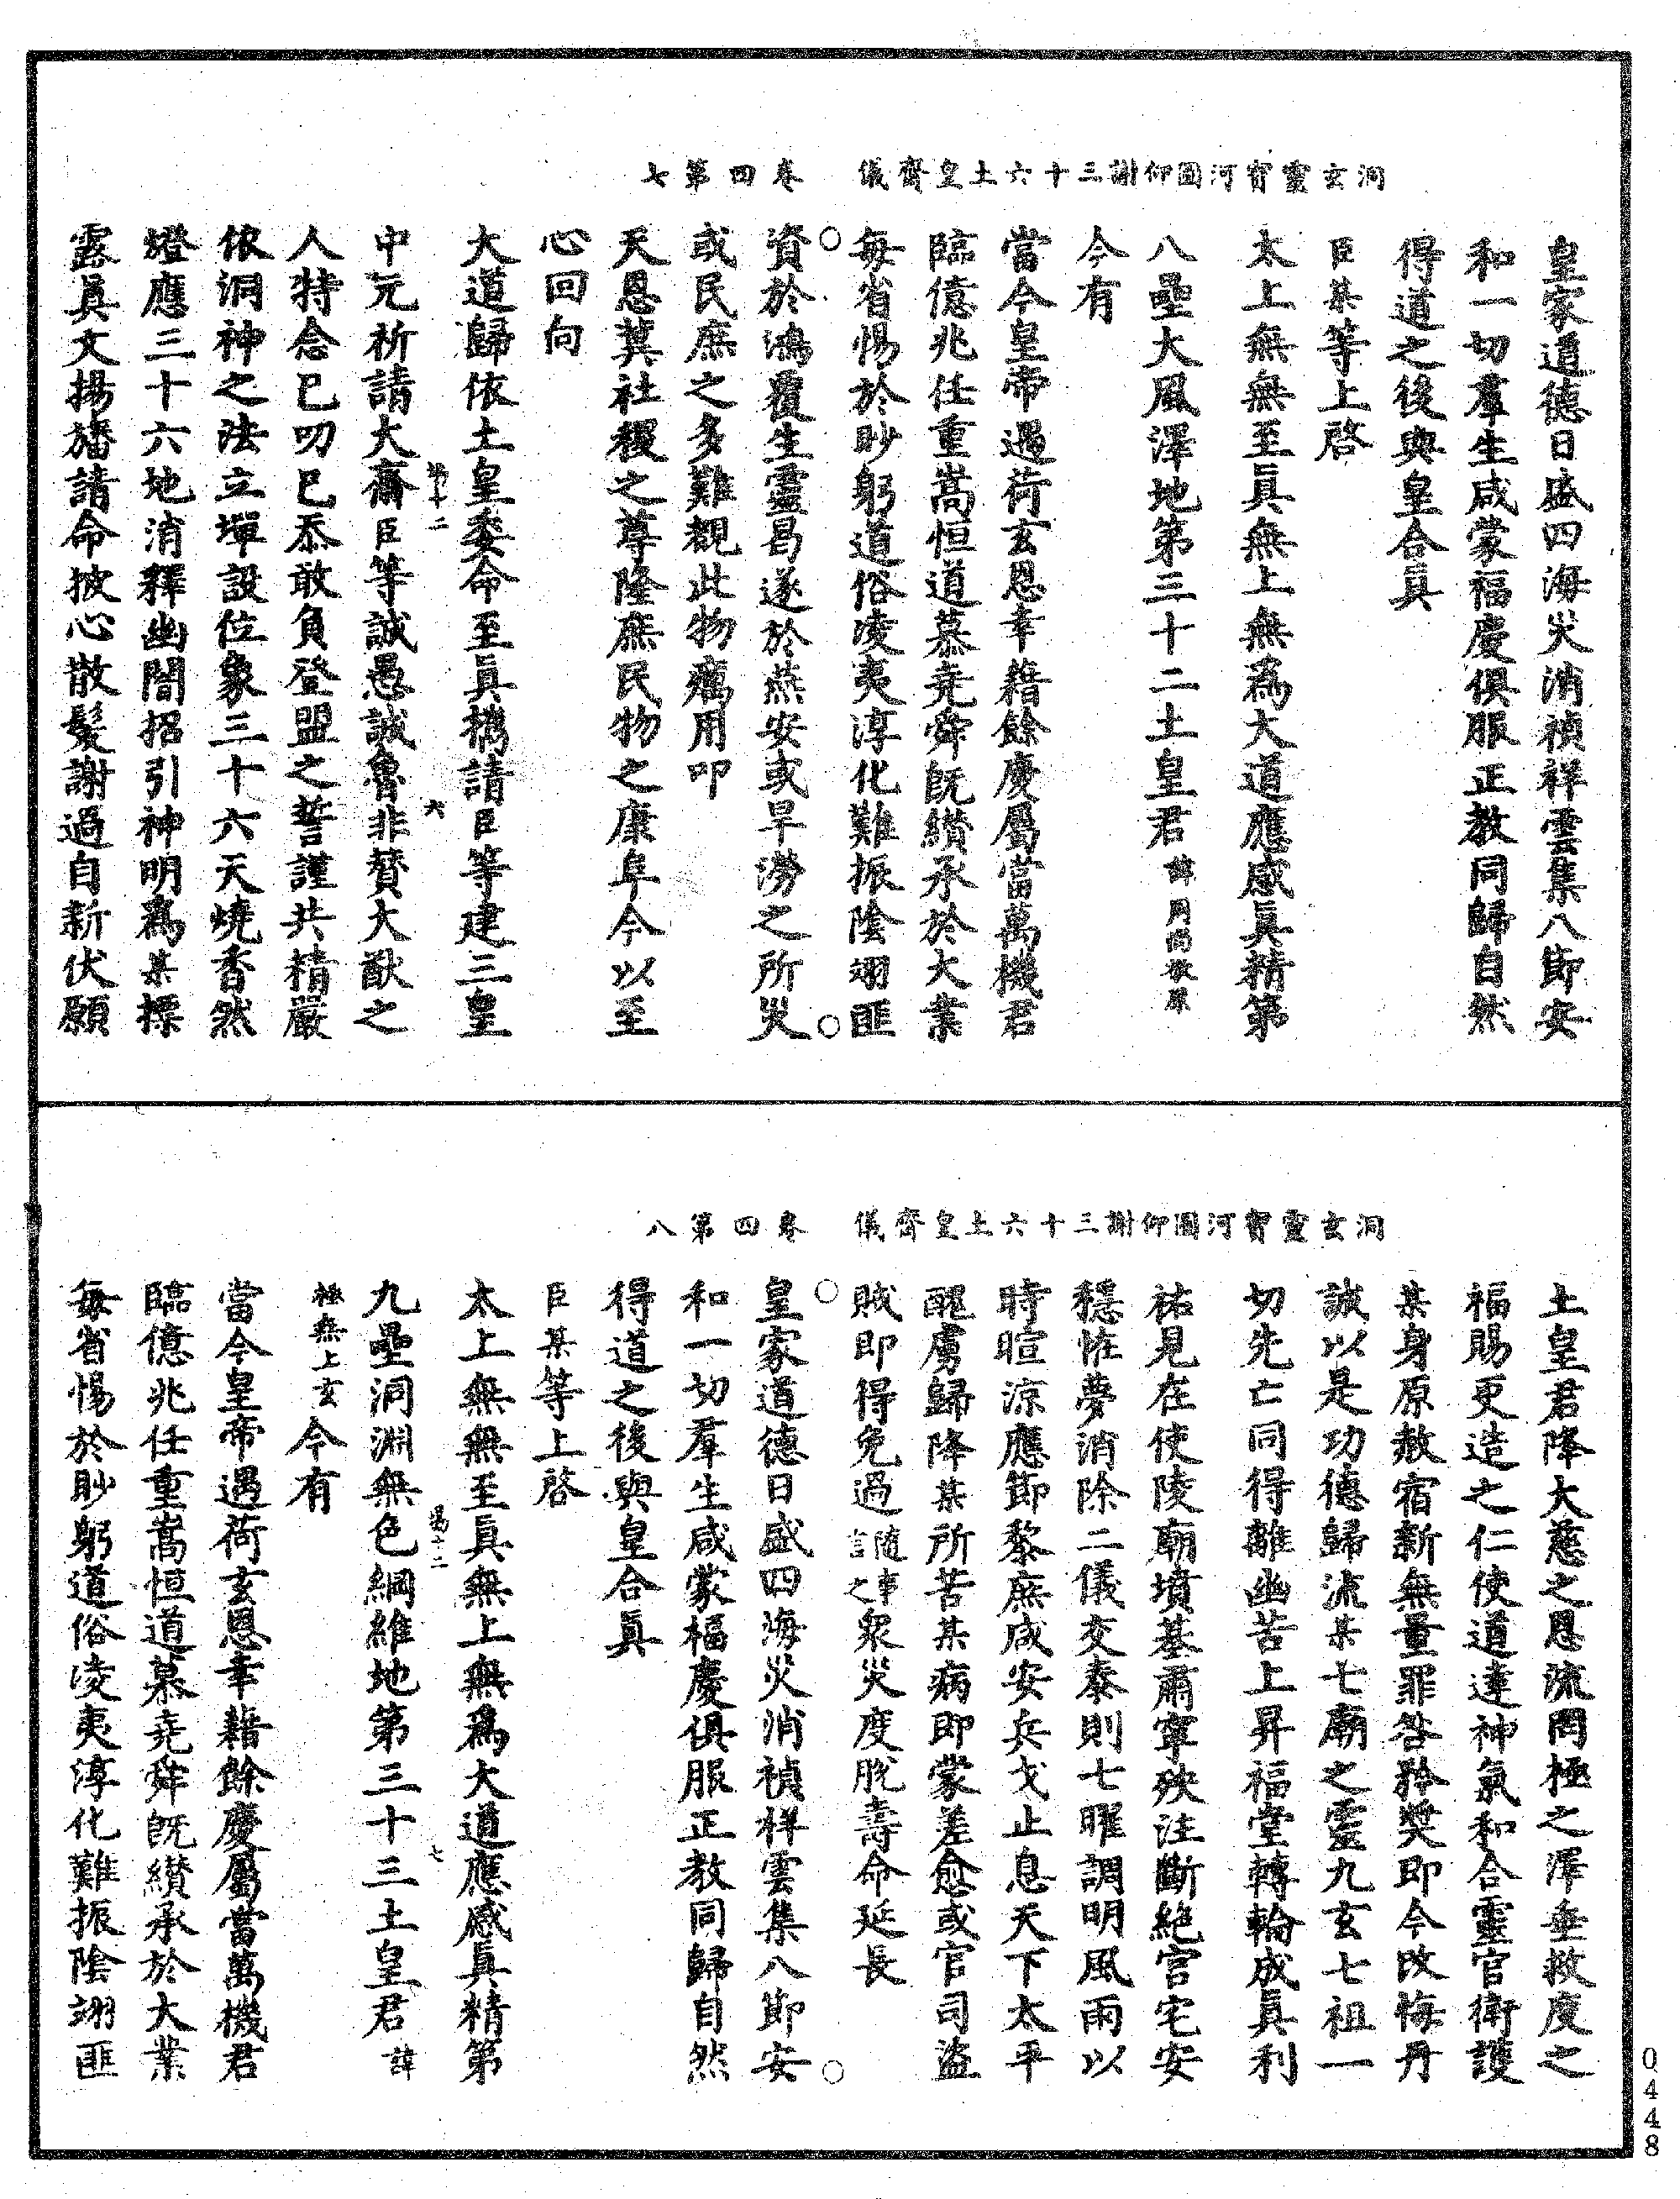 洞玄靈寶河圖仰謝三十六土皇齋儀　卷四第七
皇家道德日盛四海災消禎祥雲集八節安
和一切羣生咸蒙福慶俱服正教同歸自然
得道之後與皇合真
臣某等上啓
太上無無至真無上無為大道應感真精第
八壘大風澤地第三十二土皇君諱
今有
當今皇帝遇荷玄恩幸藉餘慶屬當萬機君
臨億兆任重嵩恒道慕堯舜既纘承於大業
每省惕於眇躬道俗凌夷淳化難振陰翊匪
資於鴻覆生靈曷遂於燕安或旱澇之所災
或民庶之多難覩此物癘用叩
天恩冀社稷之尊隆庶民物之康阜今以至
心回向
大道歸依土皇委命至真擕請臣等建三皇
中元祈請大齋臣等誠愚誠魯非贊大猷之
人特念已叨已忝敢負登盟之誓謹共精嚴
依洞神之法立壇設位象三十六天燒香然
燈應三十六地消釋幽闇招引神明為某摽
露真文揚旛請命披心散髮謝過自新伏願
洞玄靈寶河圖仰謝三十六土皇齋儀　卷四第八
土皇君降大慈之恩流罔極之澤垂救度之
福賜更造之仁使道達神氣和合靈官衛護
某身原赦宿新無量罪咎矜獎即今改悔丹
誠以是功德歸流某七廟之靈九玄七祖一
切先亡同得離幽苦上昇福堂轉輪成真利
祐見在使陵廟墳基肅寧殃注斷絕官宅安
穩恠夢消除二儀交泰則七曜調明風雨以
時暄涼應節黎庶咸安兵戈止息天下太平
醜虜歸降某所苦某病即蒙差愈或官司盜
賊即得免過隨事言之眾災度脫壽命延長
皇家道德日盛四海災消禎祥雲集八節安
和一切羣生咸蒙福慶俱服正教同歸自然
得道之後與皇合真
臣某等上啓
太上無無至真無上無為大道應感真精第
九壘洞淵無色綱維地第三十三土皇君諱
極無上玄今有
當今皇帝遇荷玄恩幸藉餘慶屬當萬機君
臨億兆任重嵩恒道慕堯舜既纘承於大業
每省惕於眇躬道俗凌夷淳化難振陰翊匪
0448